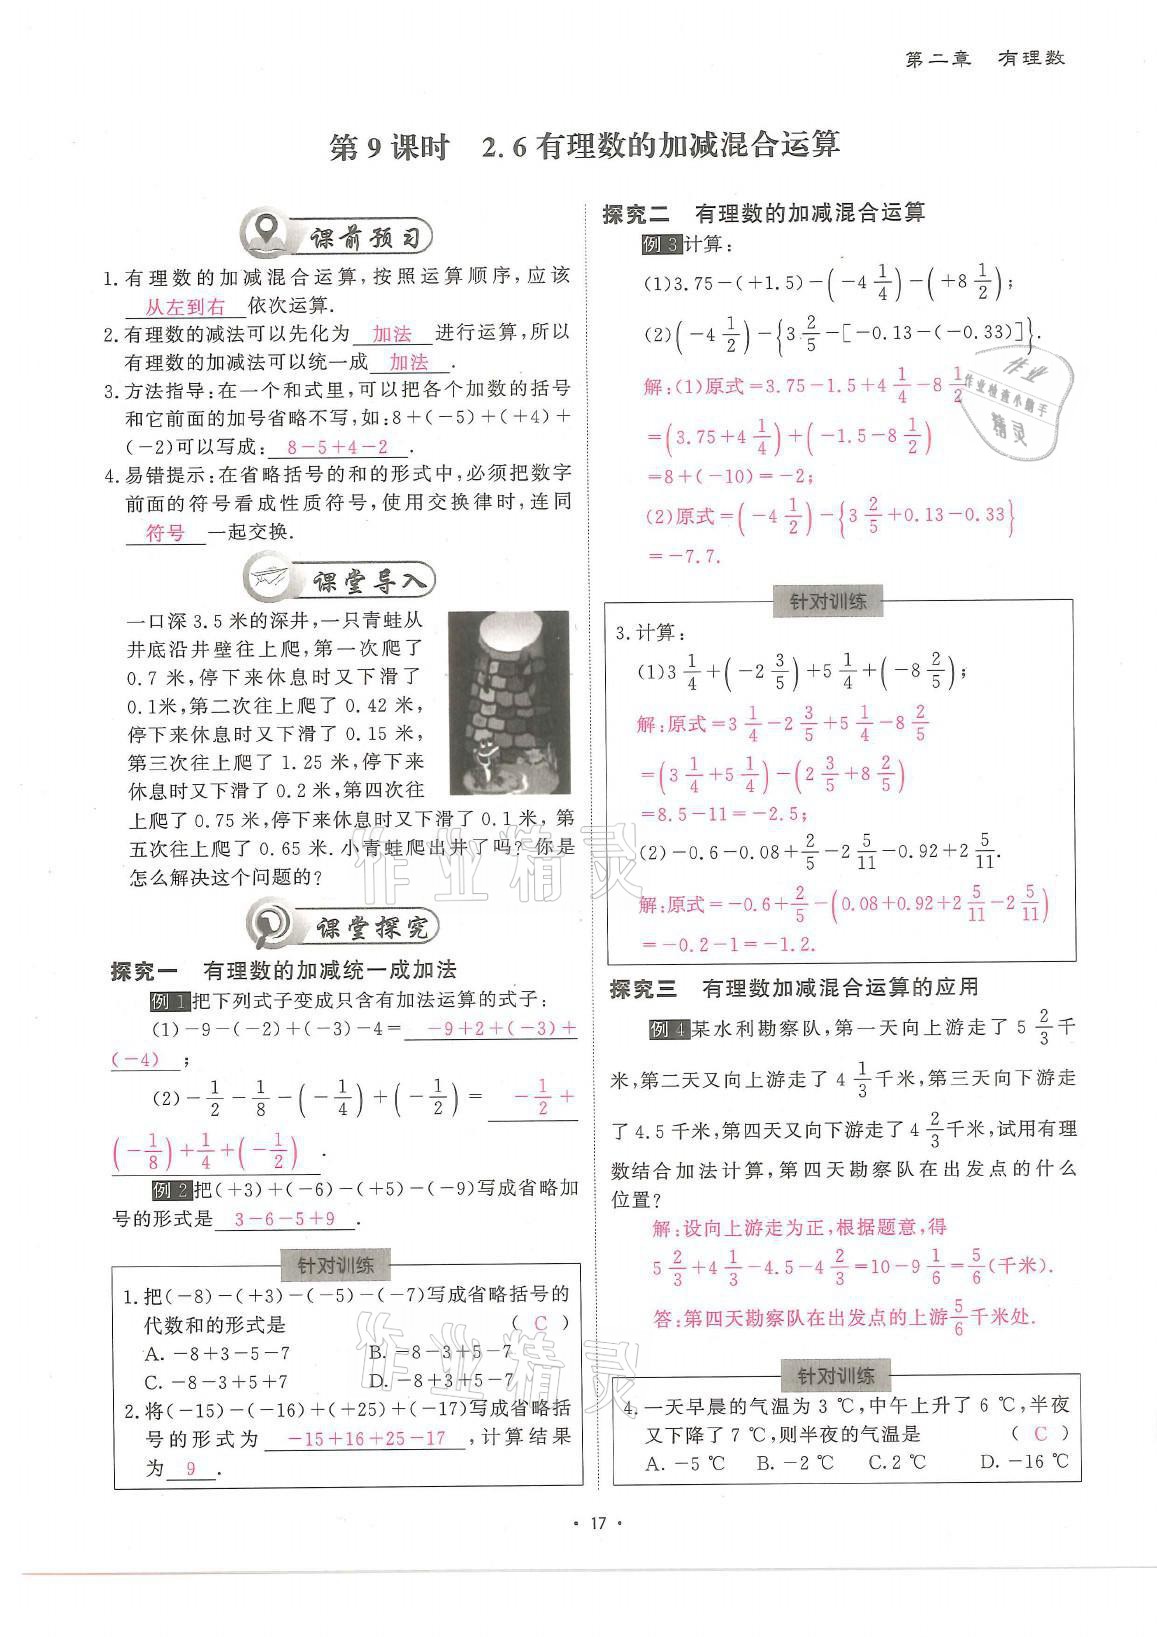 第二章 有理数
第9课时 2.6有理数的加减混合运算
课前预习
1.有理数的加减混合运算,按照运算顺序,应该
从左到右 依次运算.
2.有理数的减法可以先化为 加法 进行运算,所以
有理数的加减法可以统一成 加法 .
3.方法指导:在一个和式里,可以把各个加数的括号
和它前面的加号省略不写,如:8+(-5)+(+4)+
(-2)可以写成: 8-5+4-2 .
4.易错提示:在省略括号的和的形式中,必须把数字
前面的符号看成性质符号,使用交换律时,连同
符号 一起交换.
课堂导入
一口深3.5米的深井,一只青蛙从
井底沿井壁往上爬,第一次爬了
0.7米,停下来休息时又下滑了
0.1米,第二次往上爬了0.42米,
停下来休息时又下滑了0.15米,
第三次往上爬了1.25米,停下来
休息时又下滑了0.2米,第四次往
上爬了0.75米,停下来休息时又下滑了0.1米,第
五次往上爬了0.65米.小青蛙爬出井了吗?你是
怎么解决这个问题的?
课堂探究
探究一 有理数的加减统一成加法
例1 把下列式子变成只含有加法运算的式子:
(1)-9-(-2)+(-3)-4= -9+2+(-3)+
(-4) ;
(2)-1/2-1/8-(-1/4)+(-1/2)= -1/2+
(-1/8)+1/4+(-1/2) .
例2 把(+3)+(-6)-(+5)-(-9)写成省略加
号的形式是 3-6-5+9 .
针对训练
1.把(-8)-(+3)-(-5)-(-7)写成省略括号的
代数和的形式是 ( C )
A. -8+3-5-7 B. -8-3+5-7
C. -8-3+5+7 D. -8+3+5-7
2.将(-15)-(-16)+(+25)+(-17)写成省略括
号的形式为 -15+16+25-17 ,计算结果
为 9 .
探究二 有理数的加减混合运算
例3 计算:
(1)3.75-(+1.5)-(-4 1/4)-(+8 1/2);
(2)(-4 1/2)-{3 2/5-[-0.13-(-0.33)]}.
解:(1)原式=3.75-1.5+4 1/4-8 1/2
=(3.75+4 1/4)+(-1.5-8 1/2)
=8+(-10)=-2;
(2)原式=(-4 1/2)-{3 2/5+0.13-0.33}
=-7.7.
作业
作业检查小助手
精灵
针对训练
3.计算:
(1)3 1/4+(-2 3/5)+5 1/4+(-8 2/5);
解:原式=3 1/4-2 3/5+5 1/4-8 2/5
=(3 1/4+5 1/4)-(2 3/5+8 2/5)
=8.5-11=-2.5;
(2)-0.6-0.08+2/5-2 5/11-0.92+2 5/11.
解:原式=-0.6+2/5-(0.08+0.92+2 5/11-2 5/11)
=-0.2-1=-1.2.
探究三 有理数加减混合运算的应用
例4 某水利勘察队,第一天向上游走了5 2/3千
米,第二天又向上游走了4 1/3千米,第三天向下游走
了4.5千米,第四天又向下游走了4 2/3千米,试用有理
数结合加法计算,第四天勘察队在出发点的什么
位置?
解:设向上游走为正,根据题意,得
5 2/3+4 1/3-4.5-4 2/3=10-9 1/6=5/6(千米).
答:第四天勘察队在出发点的上游5/6千米处.
针对训练
4.一天早晨的气温为3℃,中午上升了6℃,半夜
又下降了7℃,则半夜的气温是 ( C )
A. -5 ℃ B. -2 ℃ C. 2 ℃ D. -16 ℃
作业精灵
作业精灵
• 17 •